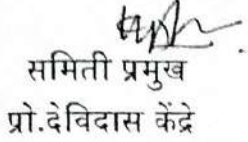 समिती प्रमुख
प्रो.देविदास केंद्रे